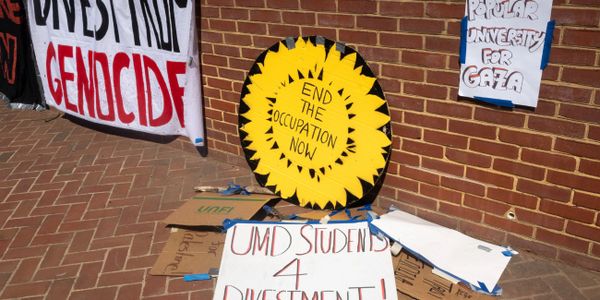 DIVEST FROM
GENOCIDE
POPULAR
UNIVERSITY
FOR
GAZA
END
THE
OCCUPATION
NOW
UMD STUDENTS
4
DIVESTMENT!
for